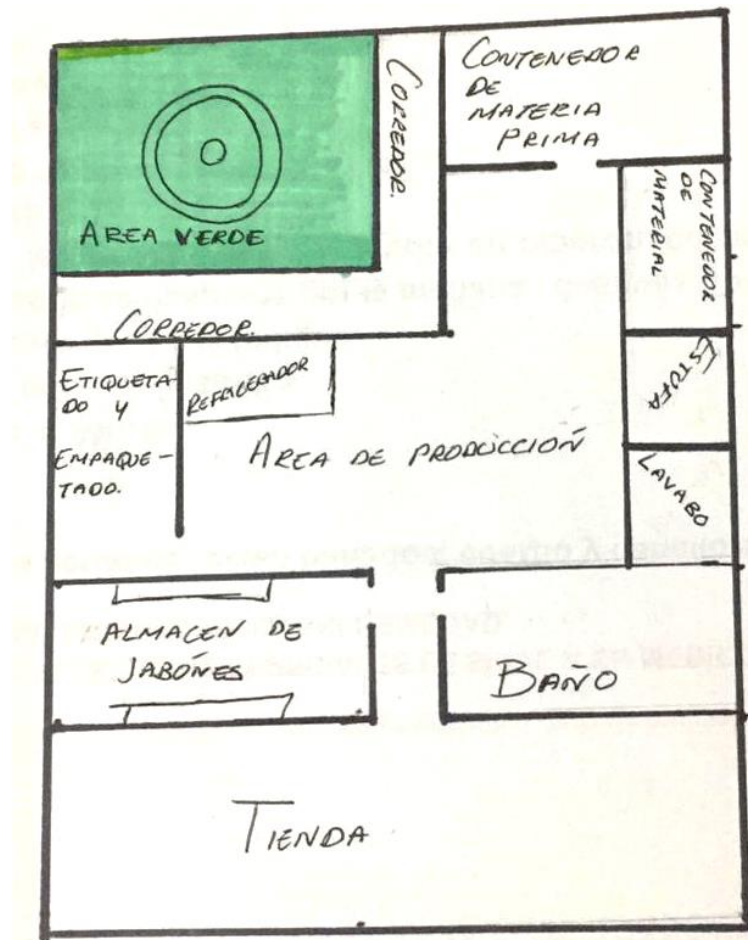 CORREDOR.
CONTENEDOR
DE
MATERIA
PRIMA
AREA VERDE
CONTENEDOR
DE
MATERIAL
CORREDOR.
ESTUFA
ETIQUETA-
DO Y
EMPAQUE-
TADO.
REFRIGERADOR
AREA DE PRODUCCIÓN
LAVABO
ALMACEN DE
JABONES
BAÑO
TIENDA